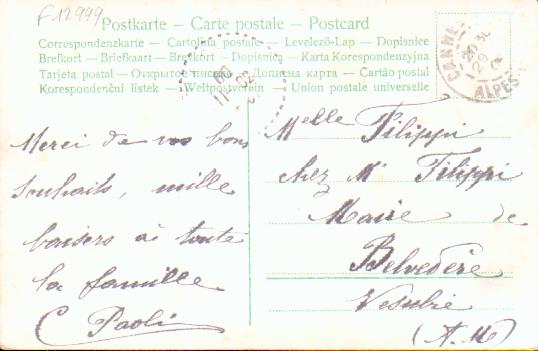 F12999
Postkarte – Carte postale – Postcard
Correspondenzkarte – Cartolina postale – Levelező-Lap – Dopisnice
Brefkort – Briefkaart – Brevkort – Dopisnica – Karta Korespondencyjna
Tarjeta postal – Открытое письмо – Дописна карта – Cartão postal
Korespondenční lístek – Weltpostverein – Union postale universelle
CANNES
ALPES
Merci de vos bons
souhaits, mille
baisers à toute
la famille
C Paoli
Melle Filippi
chez Mr Filippi
Maire de
Belvédère
Vesubie
(A. M)